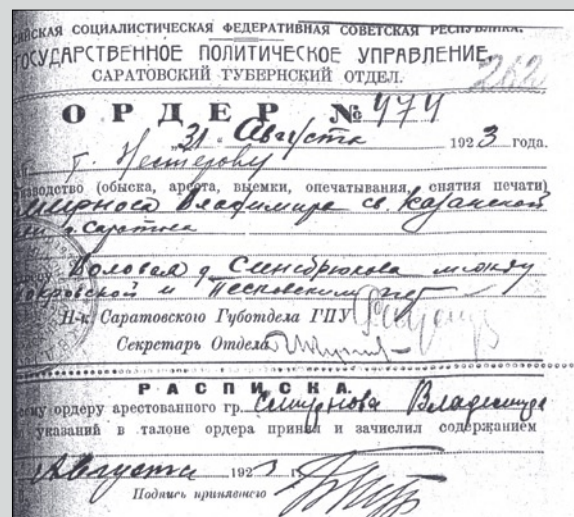 ИЙСКАЯ СОЦИАЛИСТИЧЕСКАЯ ФЕДЕРАТИВНАЯ СОВЕТСКАЯ РЕСПУБЛИКА.
ГОСУДАРСТВЕННОЕ ПОЛИТИЧЕСКОЕ УПРАВЛЕНИЕ
САРАТОВСКИЙ ГУБЕРНСКИЙ ОТДЕЛ.
262
ОРДЕР № 474
31 Августа 1923 года.
т. Нестерову
изводство (обыска, ареста, выемки, опечатывания, снятия печати)
мирнова Владимира св. Казанской
г. Саратова
Воловая д. Синебрюхова между
окровской и Песковским
Н-к Саратовского Губотдела ГПУ
Секретарь Отдела
РАСПИСКА.
ему ордеру арестованного гр. Смирнова Владимира
указаний в талоне ордера принял и зачислил содержанием
Августа 1923 г.
Подпись принявшего